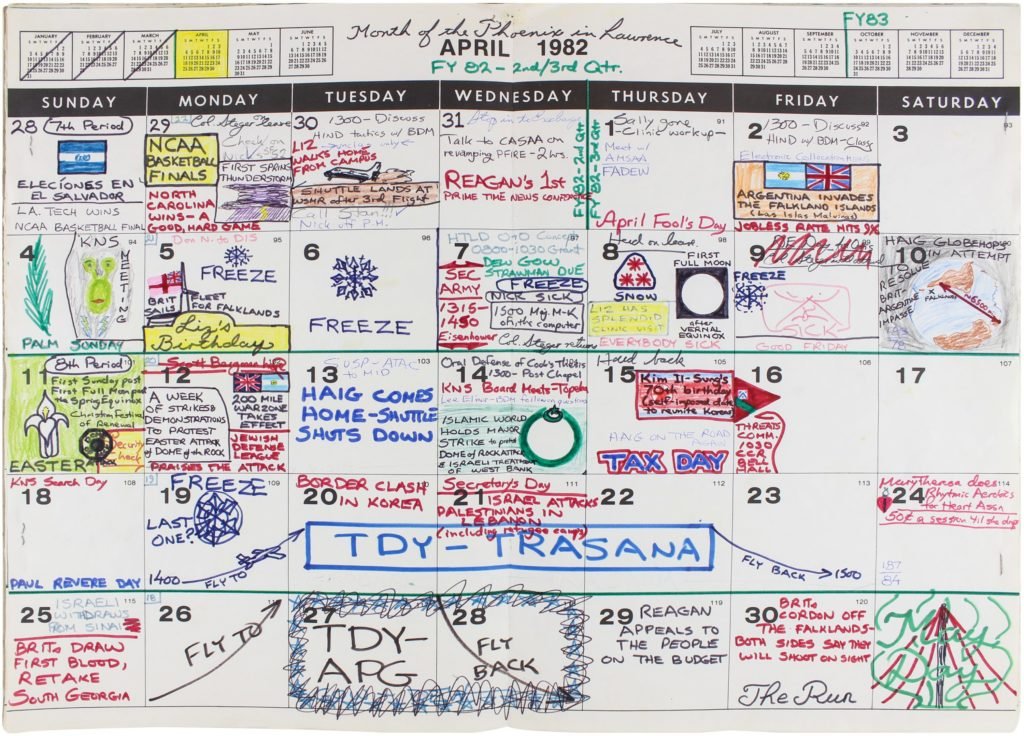 Month of the Phoenix in Lawrence
APRIL 1982
FY 82 - 2nd/3rd Qtr.
FY83
JANUARY
FEBRUARY
MARCH
APRIL
MAY
JUNE
JULY
AUGUST
SEPTEMBER
OCTOBER
NOVEMBER
DECEMBER
SUNDAY MONDAY TUESDAY WEDNESDAY THURSDAY FRIDAY SATURDAY
28 7th Period
ELECIONES EN
EL SALVADOR
L.A. TECH WINS
NCAA BASKETBALL FINAL
29
Col Steger leave
NCAA
BASKETBALL
FINALS
Check on
FIRST SPRING
THUNDERSTORM
NORTH
CAROLINA
WINS-A
GOOD, HARD GAME
30
1300- Discuss
HIND tactics w/ BDM
LIZ
WALKS HOME
FROM CAMPUS
SHUTTLE LANDS AT
WSMR after 3rd Flight
Call Stan!!
Nick off P.H.
31
Talk to CASAA on
revamping PFIRE-2hrs.
REAGAN'S 1st
PRIME TIME NEWS CONFERENCE
FY82-2nd Qtr
FY82-3rd Qtr
1 91
Sally gone
-Clinic workup-
Meet w/
AMSAA
FADEW
April Fool's Day
2 92
1300- Discuss
HIND w/ BDM-Class
ARGENTINA INVADES
THE FALKLAND ISLANDS
(Las Islas Malvinas)
JOBLESS RATE HITS 9%
3 93
4
KNS
MEETING
PALM SUNDAY
5 95
Don N. to DIS
FREEZE
BRIT
SAILS
FLEET
FOR FALKLANDS
Liz's
Birthday
6 96
FREEZE
7
HTLD O+O Concept
0800-1030 Grant
DEW GOW
STRAWMAN DUE
SEC
ARMY
FREEZE
NICK SICK
1315-
1450
1500 Maj. M-K
on the computer
Eisenhower
Col. Steger returns
8 98
Herd on leave
SNOW
FIRST FULL MOON
after
VERNAL
EQUINOX
LIZ HAS
SPLENDID
CLINIC VISIT
EVERYBODY SICK
9
FREEZE
GOOD FRIDAY
10
HAIG GLOBEHOPS
IN ATTEMPT
TO RESCUE
BRIT-
ARGENTINE
IMPASSE
FALKLANDS
11 8th Period
First Sunday past
First Full Moon past
the Spring Equinox
Christian Festival
of Renewal
Security
check
EASTER
12
Scott Bayman
A WEEK
OF STRIKES &
DEMONSTRATIONS
TO PROTEST
EASTER ATTACK
OF DOME OF THE ROCK
200 MILE
WARZONE
TAKES
EFFECT
JEWISH
DEFENSE
LEAGUE
PRAISES THE ATTACK
13 103
SUSP-ATAC
to MIO
HAIG COMES
HOME-SHUTTLE
SHUTS DOWN
14 104
Oral Defense of Cook's Thesis
1300-Post Chapel
KNS Board Meets-Topeka
ISLAMIC WORLD
HOLDS MAJOR
STRIKE to protest
DOME OF ROCK ATTACK
& ISRAELI TREATMENT
OF WEST BANK
15 105
Herd back
Kim Il-Sung's
70th birthday
(self-imposed date
to reunite Korea)
HAIG ON THE ROAD
AGAIN
TAX DAY
16 106
THREATS
COMM.
1030
CCR
BELL
HALL
17
18
KNS Search Day
PAUL REVERE DAY
19
FREEZE
LAST
ONE?
1400
FLY TO
20
BORDER CLASH
IN KOREA
21 111
Secretary's Day
ISRAEL ATTACKS
PALESTINIANS IN
LEBANON
(including refugee camps)
TDY-TRASANA
22 112
23 113
FLY BACK 1500
24 114
Mary Theresa does
Rhythmic Aerobics
for Heart Assn
50¢ a session 'til she drops
187
84
25 115
ISRAELI
WITHDRAWS
FROM SINAI
BRITS DRAW
FIRST BLOOD,
RETAKE
SOUTH GEORGIA
26
FLY TO
27
TDY-
APG
28
FLY
BACK
29 119
REAGAN
APPEALS TO
THE PEOPLE
ON THE BUDGET
30 120
BRITS
CORDON OFF
THE FALKLANDS-
BOTH SIDES SAY THEY
WILL SHOOT ON SIGHT
The Run
May
Day